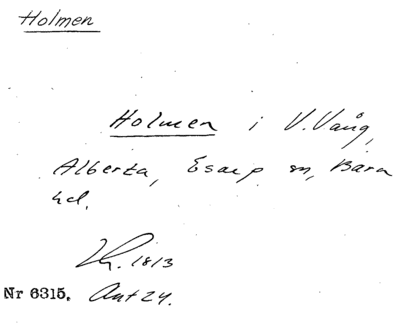 Holmen
Holmen i V. Vång,
Alberta, Esarp sn, Bara
hd.
1813
Nr 6315. Ant 24.